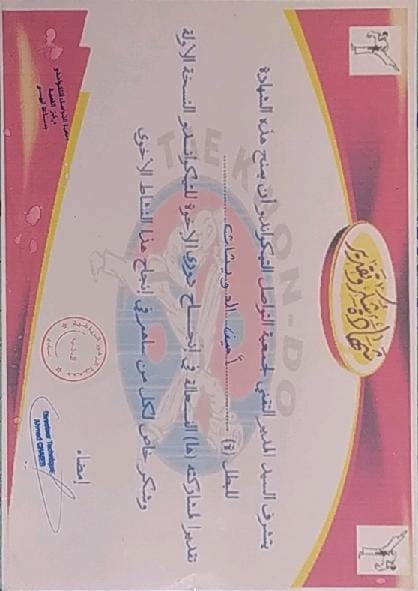 شهادة شكر وتقدير
TEKWON-DO
يتشرف السيد المدير التقني لجمعية التواصل التيكواندو أن يمنح هذه الشهادة
للبطل (ة) ...............................
تقديرا لمشاركته (ها) الفعالة في إنجاح دوري الإخوة للتيكواندو النسخة الأولة
وشكر خاص لكل من ساهم في إنجاح هذا النشاط الأخوي
إمضاء
Directeur Technique
جمعية التواصل للتيكواندو